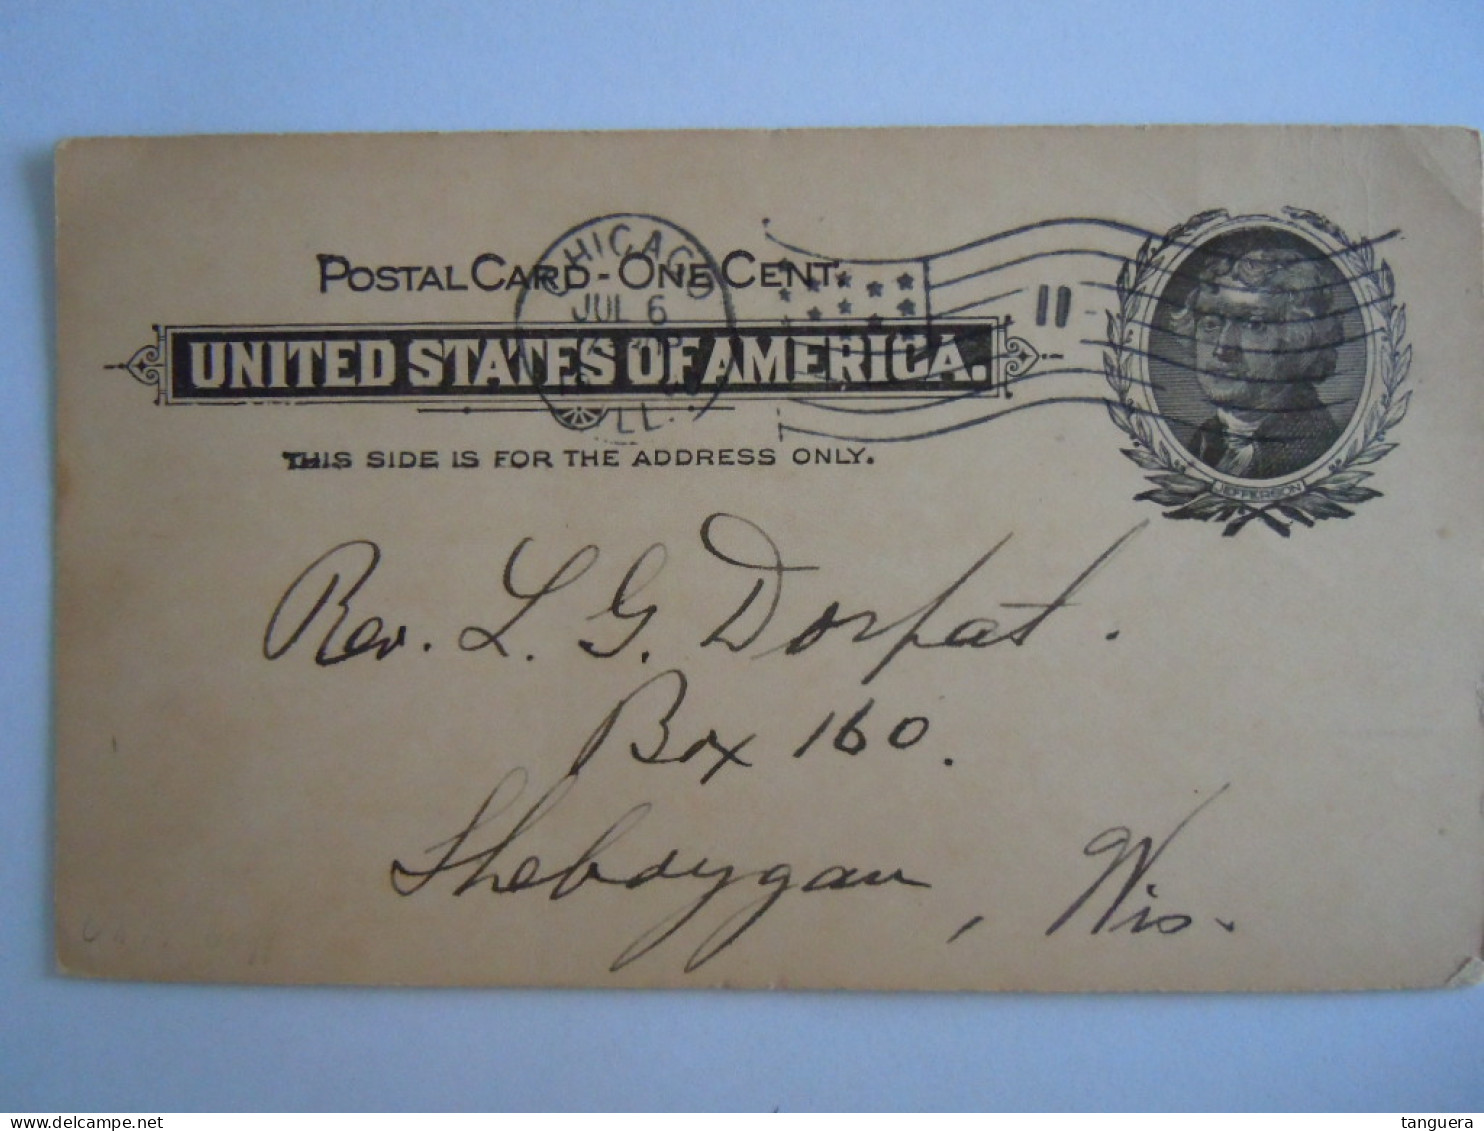 POSTAL CARD - ONE CENT.
UNITED STATES OF AMERICA.
THIS SIDE IS FOR THE ADDRESS ONLY.
CHICAGO
JUL 6
ILL.
11
JEFFERSON
Rev. L. G. Dorpat.
Box 160.
Sheboygan, Wis.
tanguera